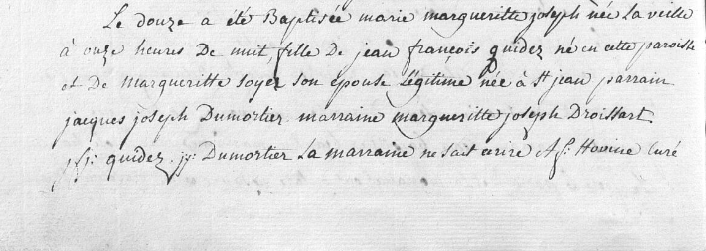 Le douze a été Baptisée marie margueritte joseph née La veille
à onze heures De nuit fille De jean françois quidez né en cette paroisse
et De margueritte soyez son epouse Légitime née à St jean parrain
jacques joseph Dumortier marraine margueritte joseph Droissart
jfs: quidez. jj: Dumortier La marraine ne sait ecrire A fs: Hovine Curé